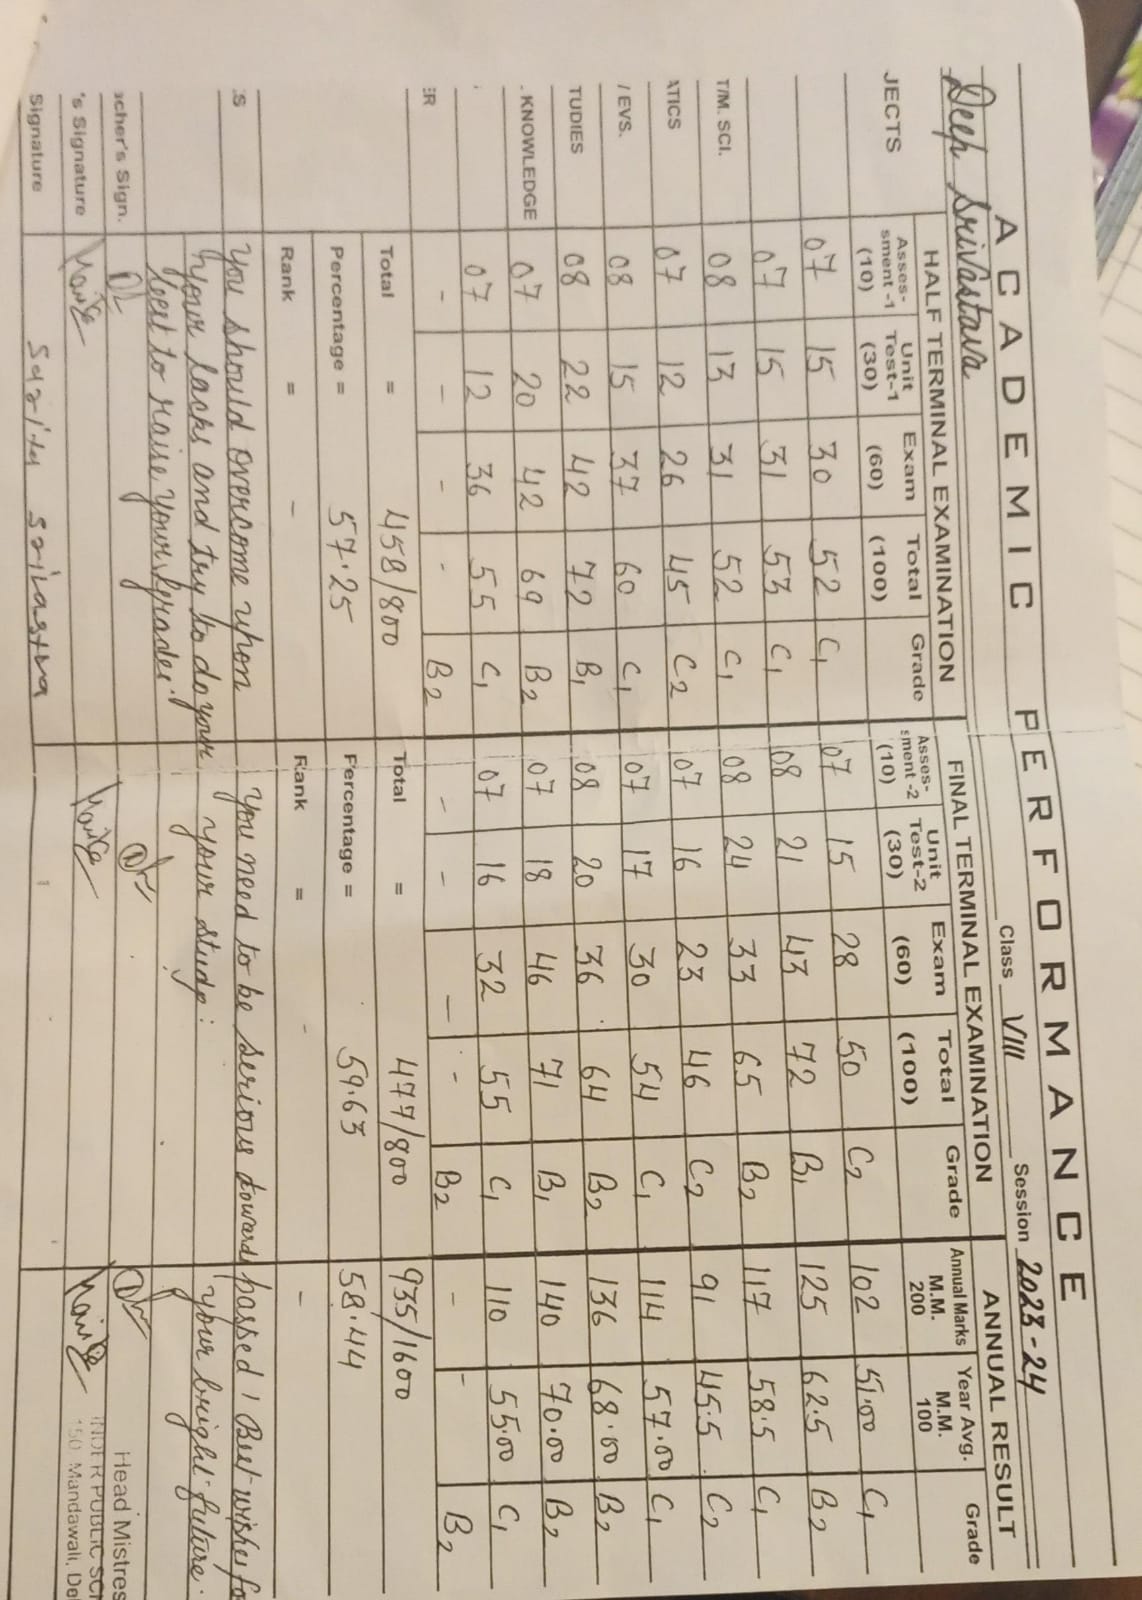 ACADEMIC PERFORMANCE
Deep Srivastava Class VIII Session 2023-24
JECTS HALF TERMINAL EXAMINATION FINAL TERMINAL EXAMINATION ANNUAL RESULT
Asses-sment -1 (10) Unit Test-1 (30) Exam (60) Total (100) Grade Asses-sment -2 (10) Unit Test-2 (30) Exam (60) Total (100) Grade Annual Marks M.M. 200 Year Avg. M.M. 100 Grade
07 15 30 52 C1 07 15 28 50 C2 102 51.00 C1
07 15 31 53 C1 08 21 43 72 B1 125 62.5 B2
T/M. SCI. 08 13 31 52 C1 08 24 33 65 B2 117 58.5 C1
ATICS 07 12 26 45 C2 07 16 23 46 C2 91 45.5 C2
/ EVS. 08 15 37 60 C1 07 17 30 54 C1 114 57.00 C1
TUDIES 08 22 42 72 B1 08 20 36 64 B2 136 68.00 B2
. KNOWLEDGE 07 20 42 69 B2 07 18 46 71 B1 140 70.00 B2
07 12 36 55 C1 07 16 32 55 C1 110 55.00 C1
ER - - - - B2 - - - - B2 - - B2
Total = 458/800 Total = 477/800 935/1600
Percentage = 57.25 Percentage = 59.63 58.44
Rank = - Rank = - -
S You should overcome upon You need to be serious towards passed ! Best wishes fo
your lacks and try to do your your study. your bright future.
best to raise your grades.
acher's Sign.
's Signature
Signature Sarita Srivastva
Head Mistres
INDER PUBLIC SCH
150, Mandawali, Del